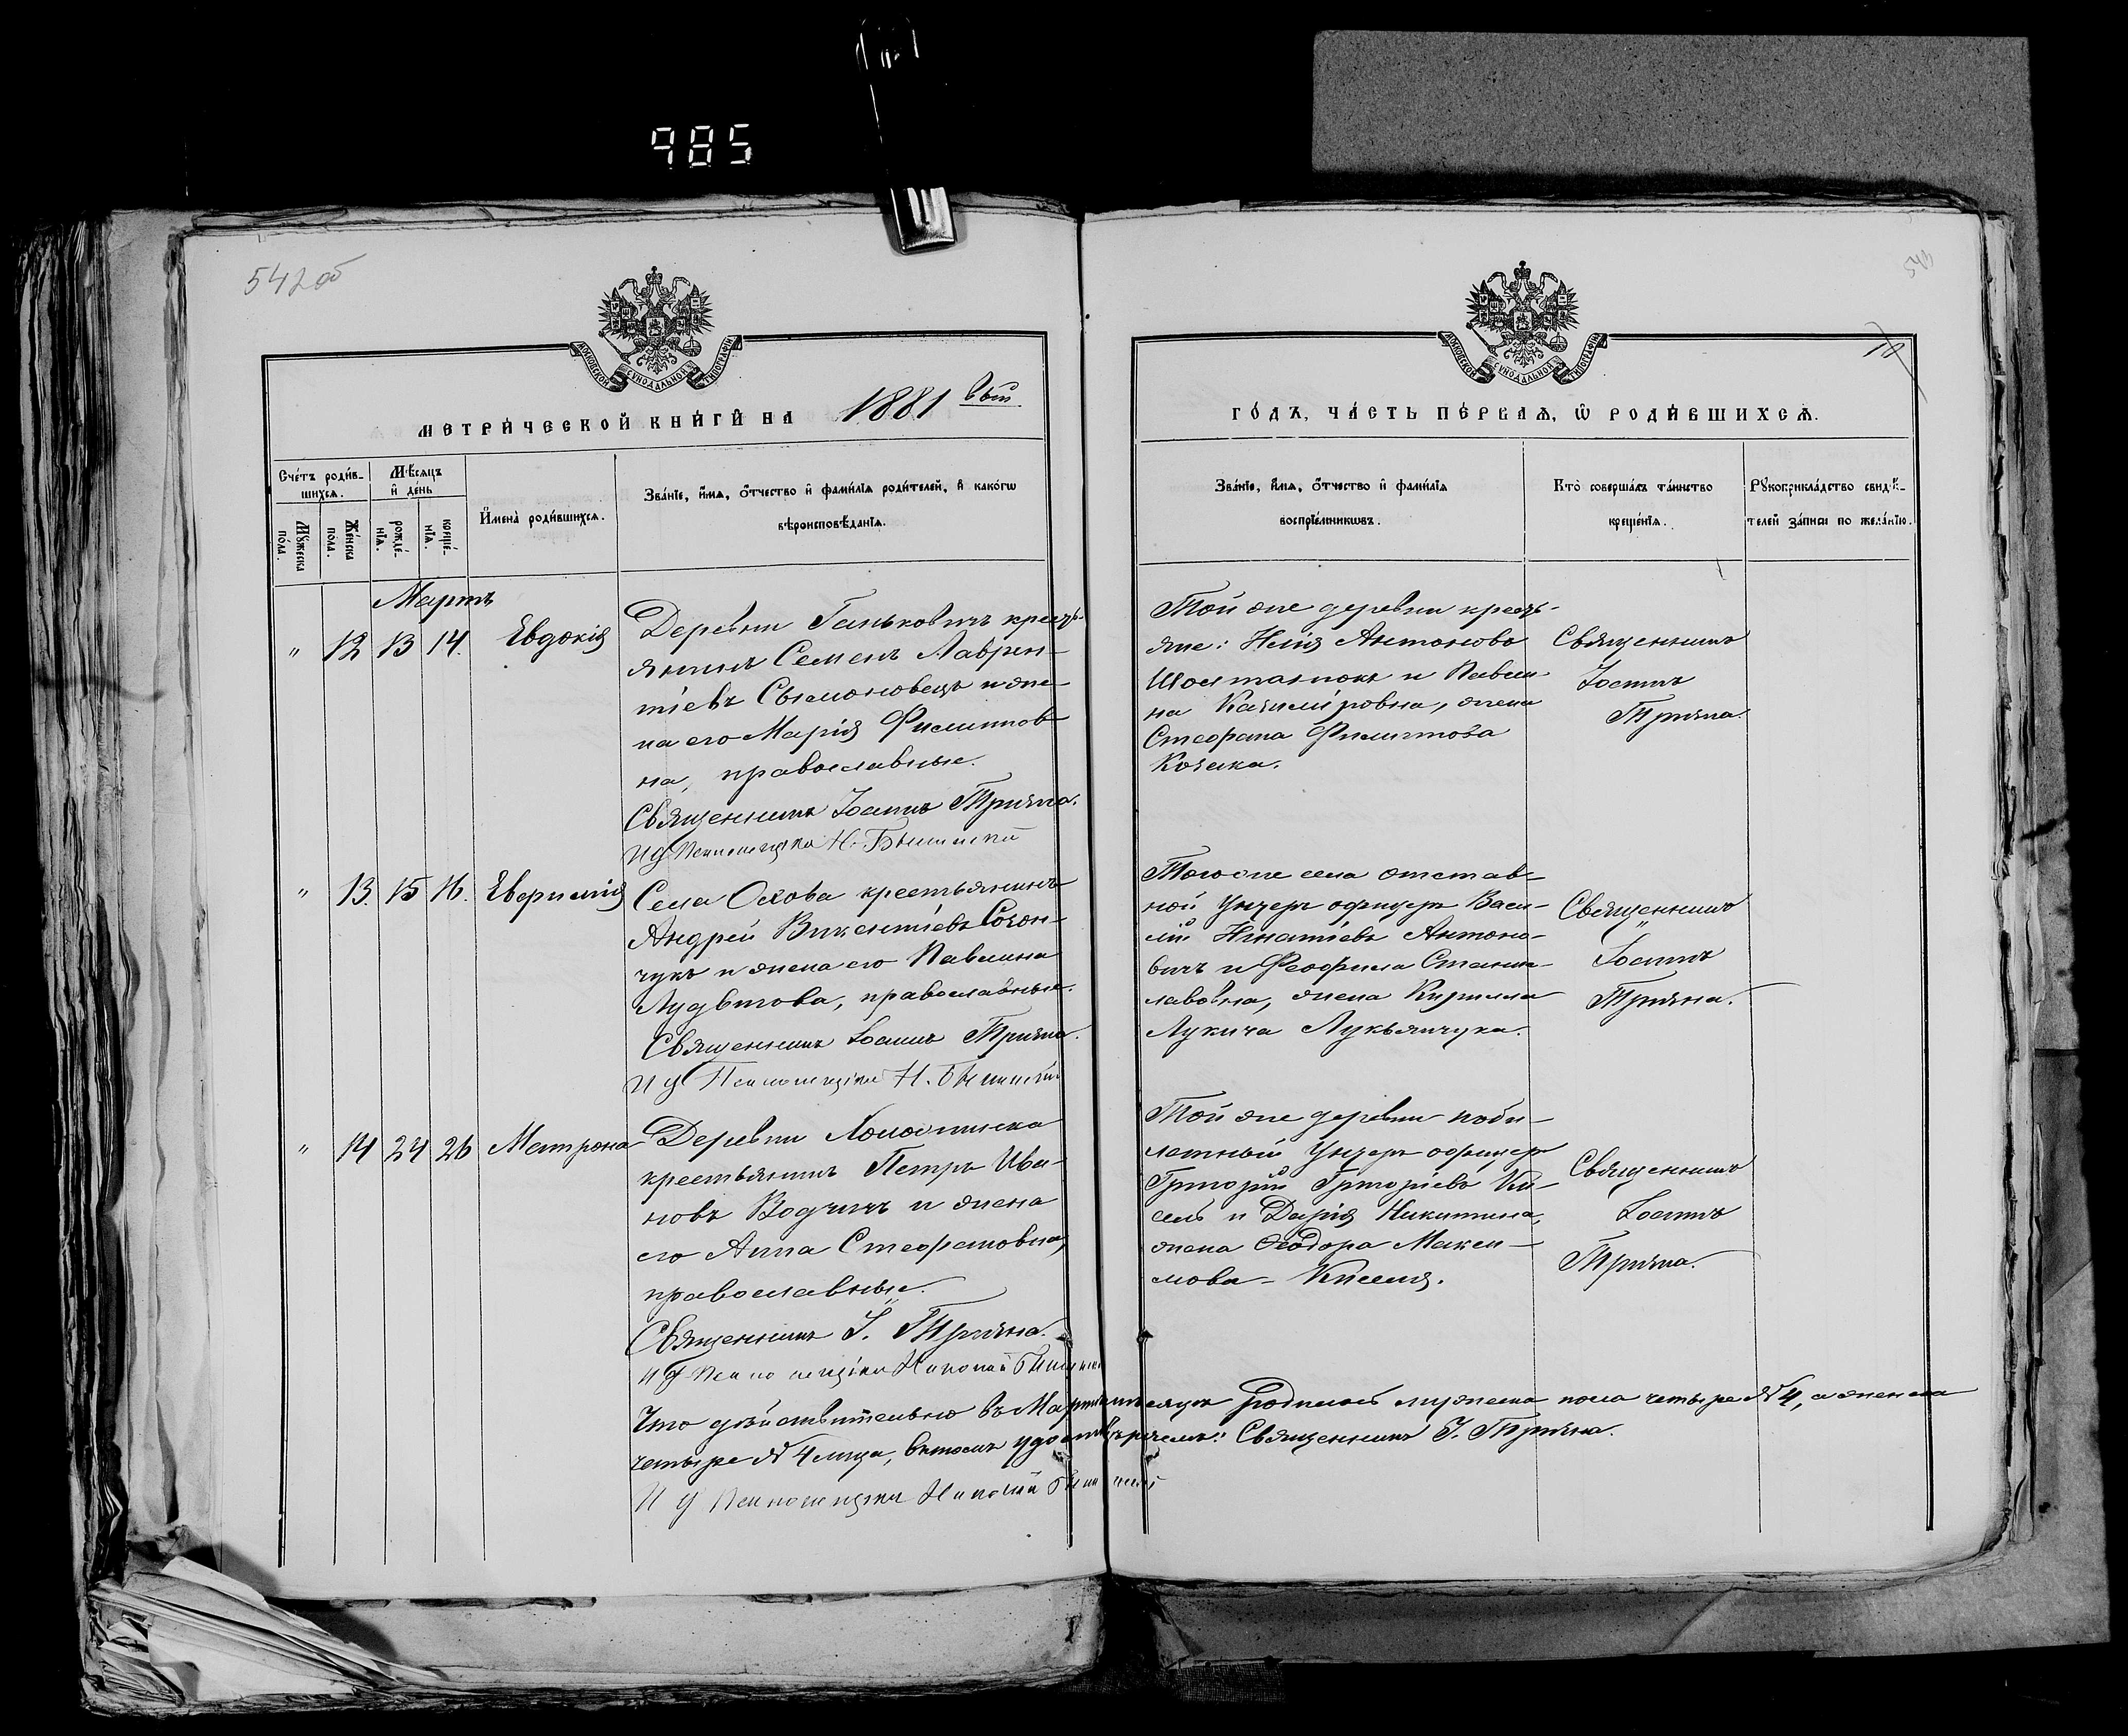 985
542 об
543
МОСКОВСКОЙ СѴНОДАЛЬНОЙ ТИПОГРАФІИ
МОСКОВСКОЙ СѴНОДАЛЬНОЙ ТИПОГРАФІИ
МЕТРИ́ЧЕСКОЙ КНИ́ГИ НА 1881 ый
ГО́ДЪ, ЧА́СТЬ ПЕ́РВАѦ, Ѿ РОДИ́ВШИХСѦ.
Сче́тъ роди́в-
шихсѧ.
Мꙋ́жеска по́ла.
Же́нска по́ла.
Мѣ́сѧцъ
и҆ де́нь
рожде́-
нїѧ.
креще́-
нїѧ.
И҆мена̀ роди́вшихсѧ.
Зва́нїе, и҆́мѧ, ѻ҆́тчество и҆ фами́лїѧ роди́телей, и҆ како́гѡ
вѣроисповѣ́данїѧ.
Зва́нїе, и҆́мѧ, ѻ҆́тчество и҆ фами́лїѧ
воспрїе́мникѡвъ.
Кто̀ соверша́лъ та́инство
креще́нїѧ.
Рꙋкоприкла́дство свидѣ́-
телей за́писи по жела́нїю.
Мартъ
" 12 13 14. Евдокія
Деревни Ганьковичъ кресть-
янинъ Семенъ Лаврен-
тіевъ и же-
на его Марія Филиппов-
на, православные.
Священникъ Іоаннъ
ИД Псаломщика Н.
Той же деревни кресть-
яне: Илія Антоновъ
и Павли-
на Казимировна, жена
Стефана Филиппова
Козека.
Священникъ
Іоаннъ
" 13. 15 16. Евфимія
Села крестьянинъ
Андрей Викентіевъ
чукъ и жена его Павлина
православные.
Священникъ Іоаннъ
ИД Псаломщика Н.
Того же села отстав-
ной унтеръ офицеръ Васи-
лій Игнатіевъ Антоно-
вичъ и Феофила Станис-
лавовна, жена Кирилла
Лукича Лукьянчука.
Священникъ
Іоаннъ
" 14 24 26 Матрона
Деревни
крестьянинъ Петръ Ива-
новъ Водчичъ и жена
его Анна Стефановна,
православные.
Священникъ І.
ИД Псаломщика Николай
Той же деревни
унтеръ офицеръ
Григорій Григоріевъ Ки-
сель и Дарія Никитина,
жена Феодора Макси-
мова Киселя.
Священникъ
Іоаннъ
Что дѣйствительно въ Мартѣ мѣсяцѣ родилось мужеска пола четыре № 4, а женска
четыре № 4 лица, въ томъ удостовѣряемъ: Священникъ І.
И Д Псаломщика Николай